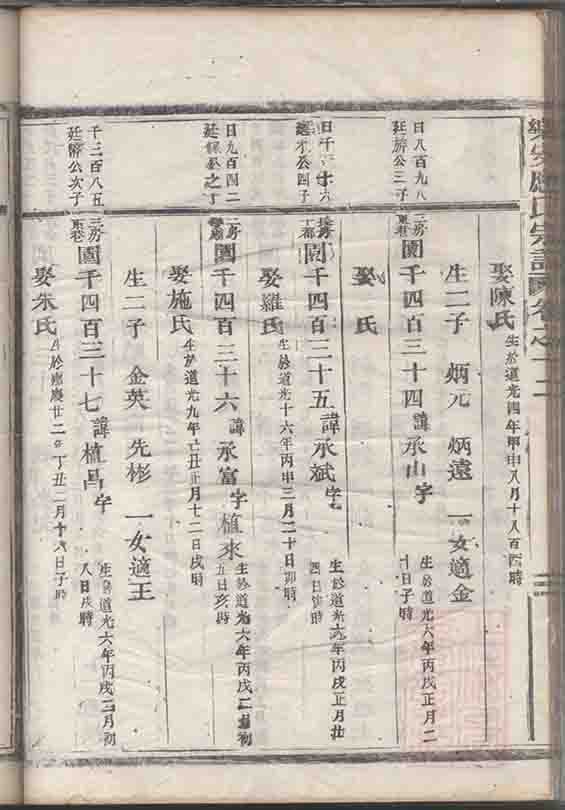 娶陳氏 生於道光四年甲申八月十八日酉時
生二子 炳元 炳遠 一女適金
日八百九八
廷 公三子
三房東巷 園千四百三十四 諱承山 字 生於道光六年丙戌正月二十日子時
娶 氏
公四子
園千四百三十五 諱承斌 字 生於道光六年丙戌正月廿四日 時
娶羅氏 生於道光十六年丙申三月二十日卯時
日九百四二
園千四百三十六 諱承富 字植來 生於道光六年丙戌二月初五日亥時
娶施氏 生於道光九年己丑正月十二日戌時
生二子 金英 先彬 一女適王
千三百八五
廷 公次子
三房東巷 園千四百三十七 諱植昌 字 生於道光六年丙戌二月初八日戌時
娶朱氏 生於嘉慶廿二年丁丑二月十六日子時